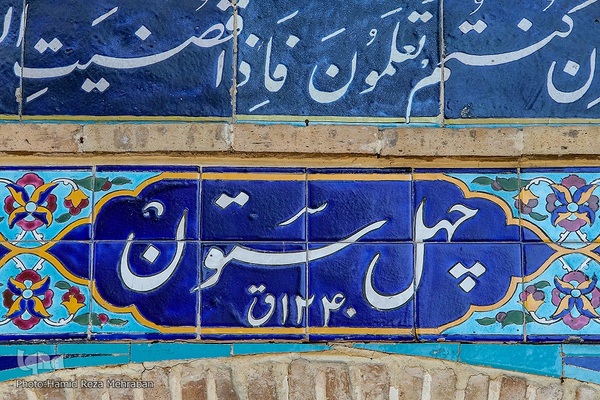 كُنتُم تَعلَمُونَ فَاِذا قُضِيَتِ
چهل ستون
۱۲۴۰ق
Photo:Hamid Reza Mehraban